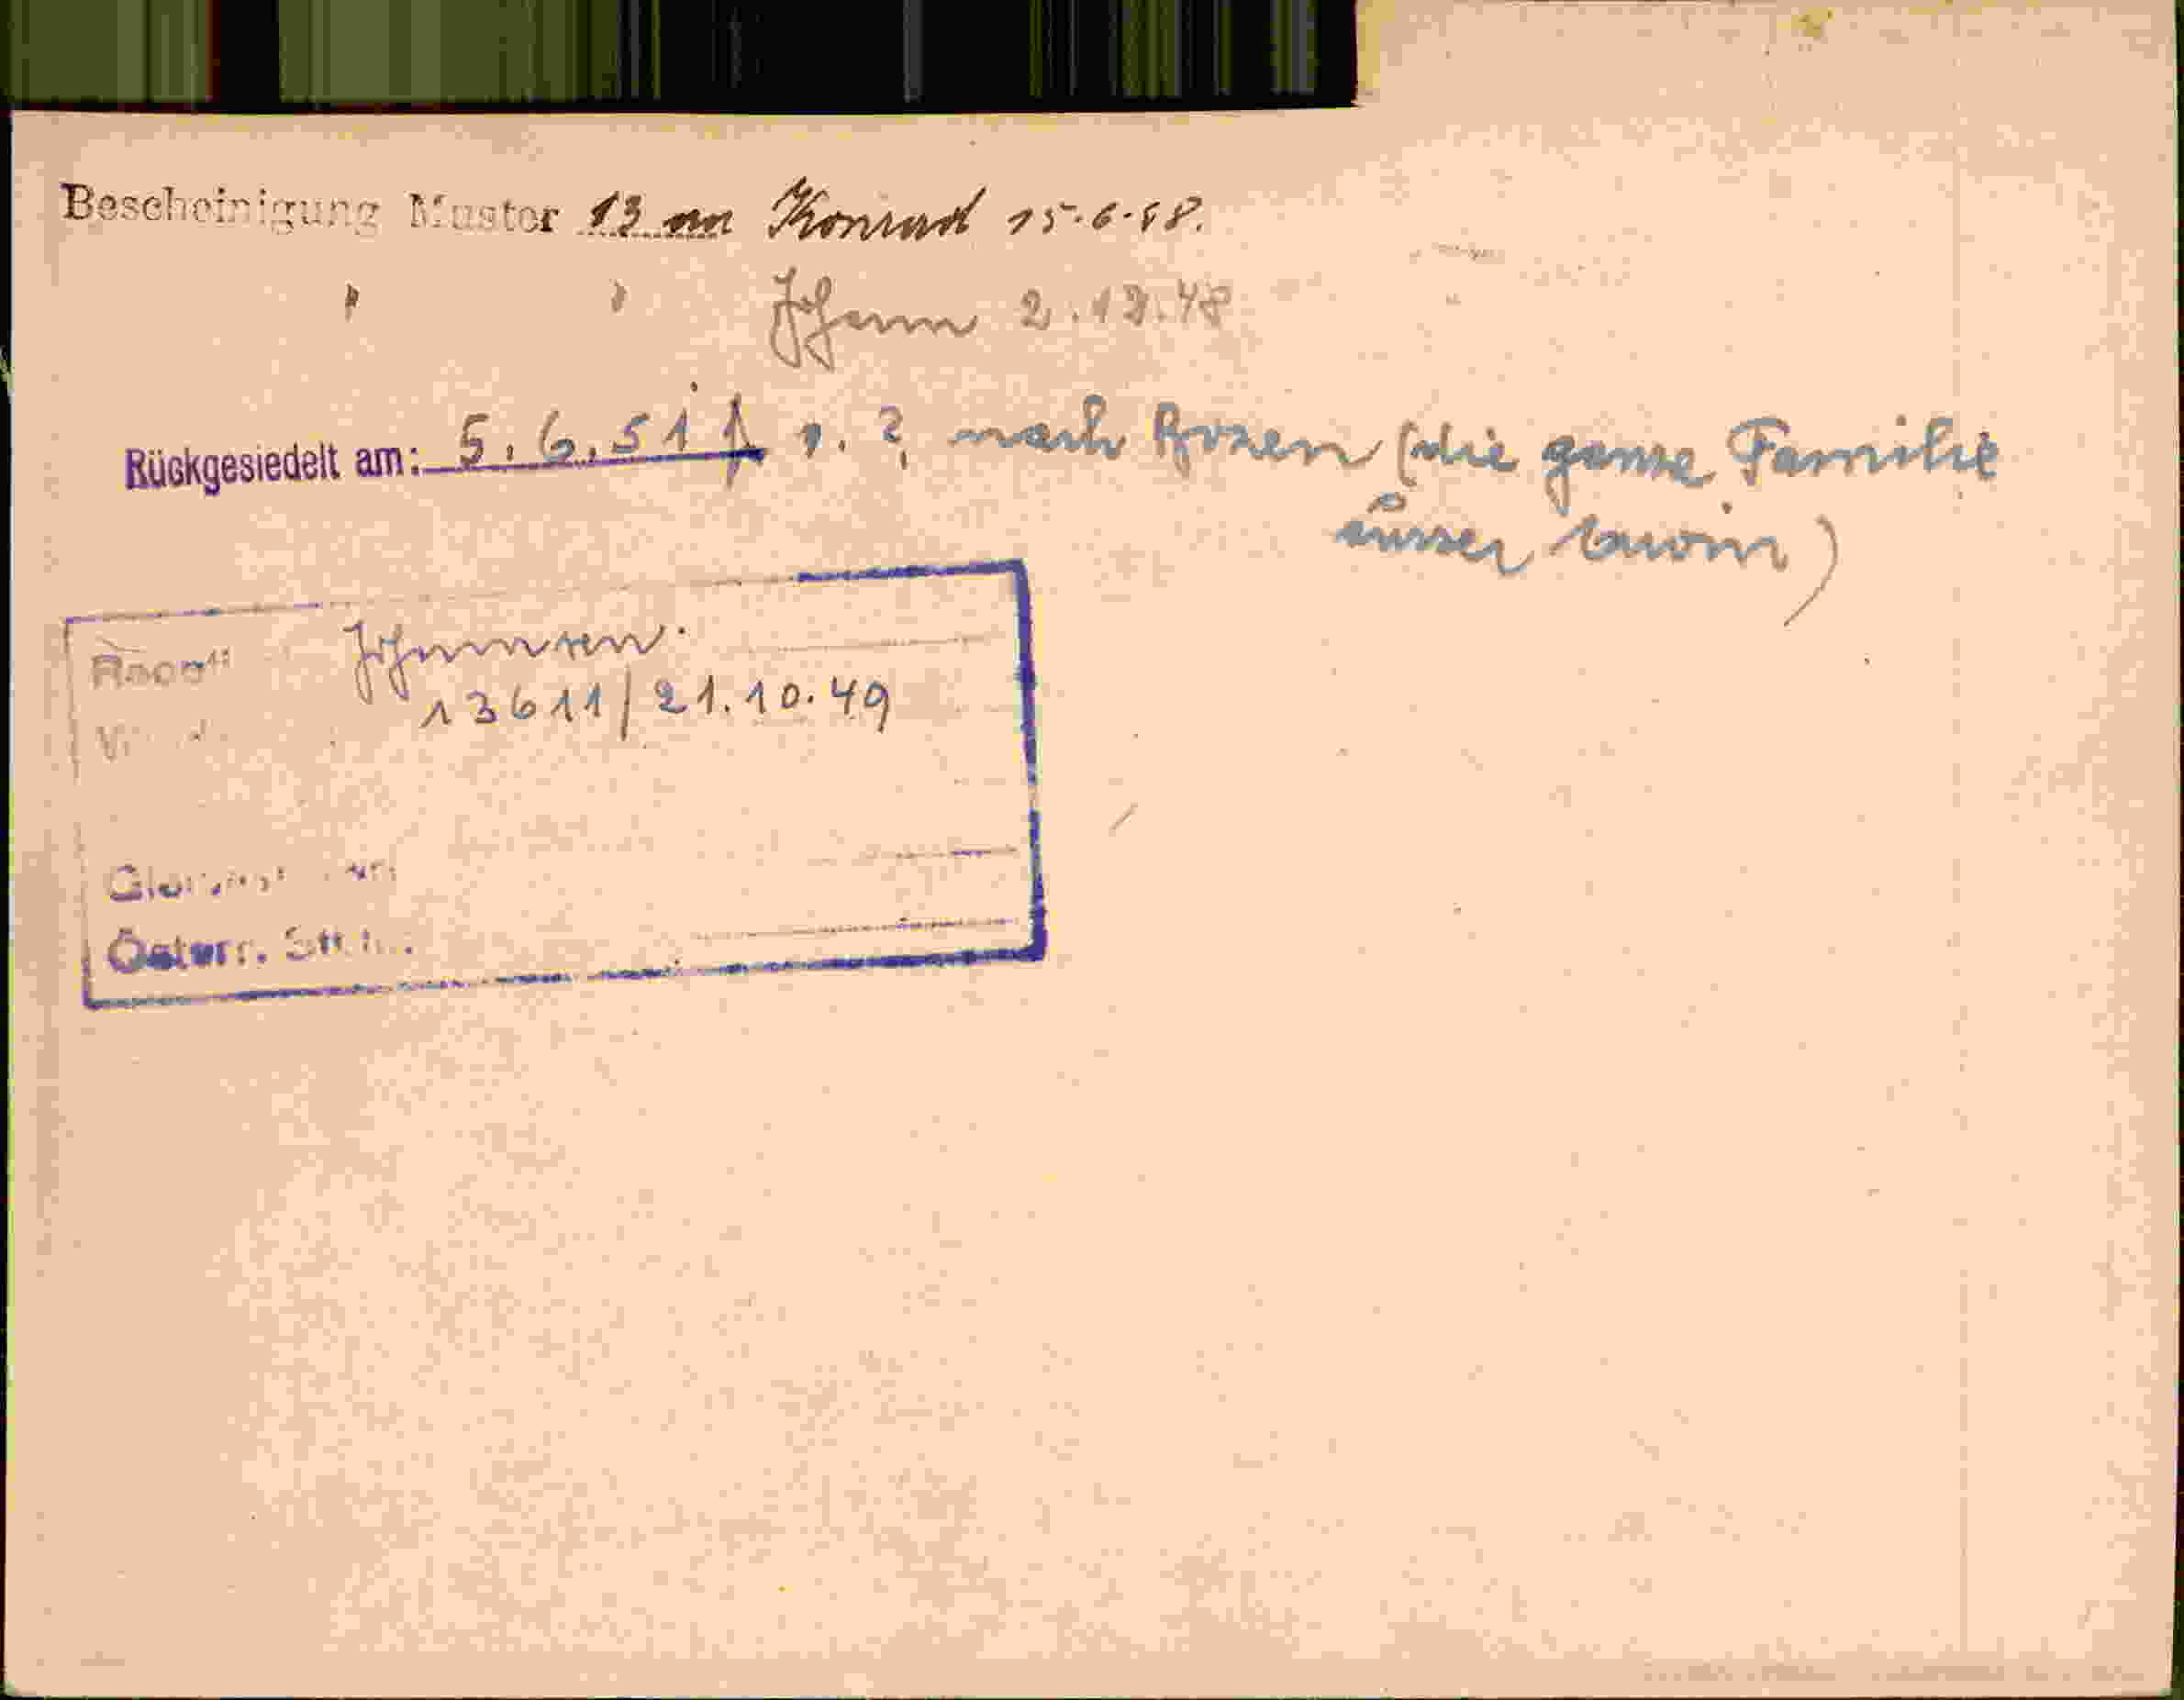 Bescheinigung Muster 13 an Konrad 15.6.48.
" " Johann 2.12.48
Rückgesiedelt am: 5.6.51 v. ? nach Bozen (die ganze Familie
ausser
13611/21.10.49
Österr.